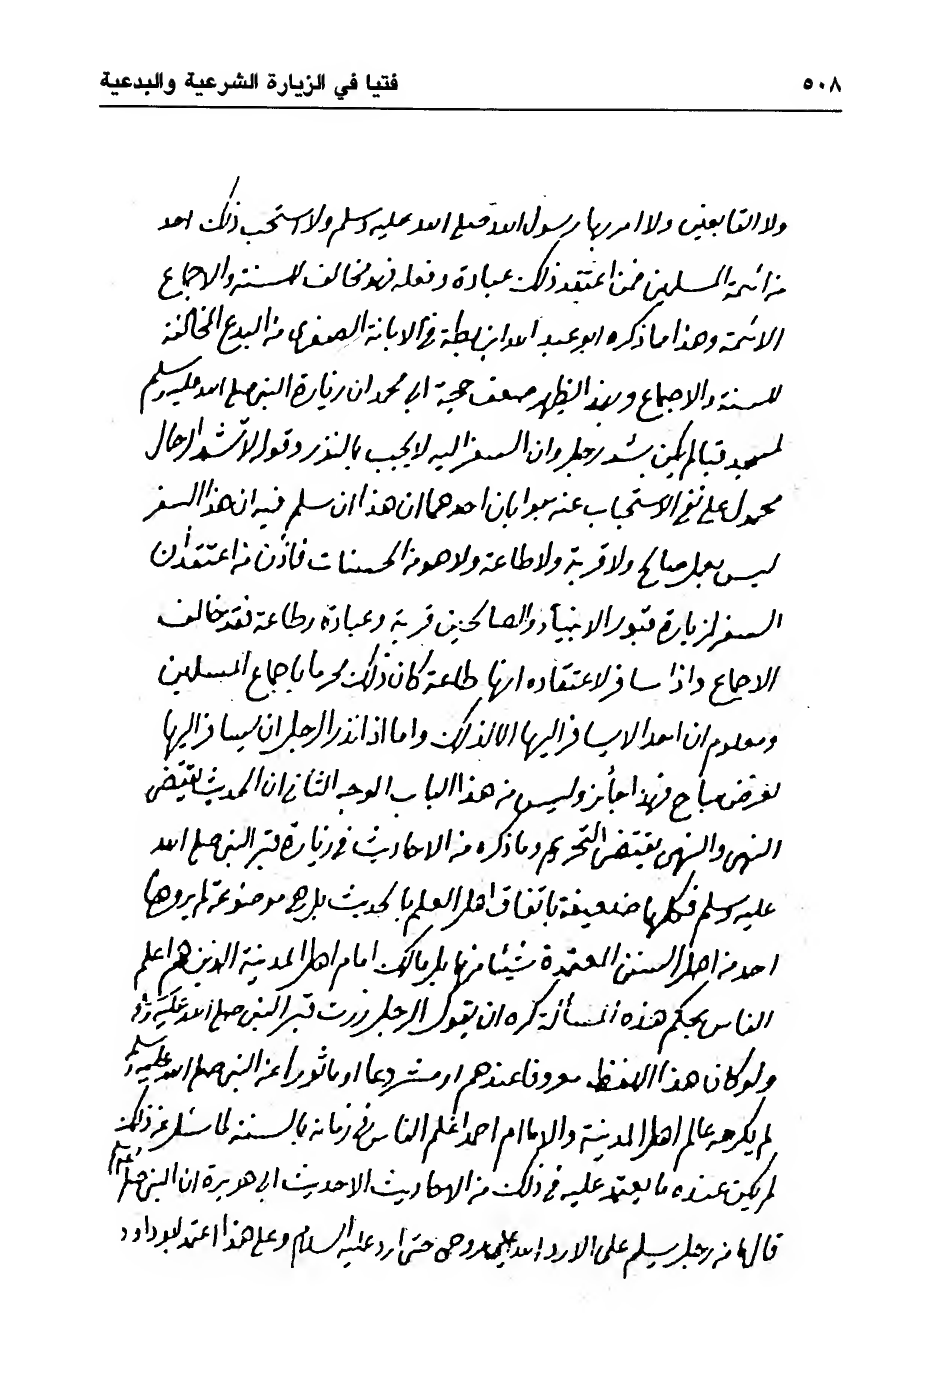 ٥٠٨ فتيا في الزيارة الشرعية والبدعية
ولا التابعين ولا امر بها رسول الله صلى الله عليه وسلم ولا استحب ذلك احد
من ائمة المسلمين فمن اعتقد ذلك عبادة وفعله فهو مخالف للسنة والاجماع
الائمة وهذا مما ذكره ابو عبد الله ابن بطة في الابانة الصغرى من البدع المخالفة
للسنة والاجماع وبهذا يظهر ضعف حجة ابي محمد ان زيارة النبي صلى الله عليه وسلم
لمسجد قبا لم يكن بشد رحل وان السفر اليه لا يجب بالنذر وقوله لا تشد الرحال
محمول على نفي الاستحباب عنه جوابان احدهما ان هذا ان سلم فيه ان هذا السفر
ليس بعمل صالح ولا قربة ولا طاعة ولا هو من الحسنات فاذن من اعتقد ان
السفر لزيارة قبور الانبياء والصالحين قربة وعبادة وطاعة فقد خالف
الاجماع واذا سافر لاعتقاده انها طاعة كان ذلك محرما باجماع المسلمين
ومعلوم ان احدا لا يسافر اليها الا لذلك واما اذا نذر الرجل ان يسافر اليها
لغرض مباح فهذا جائز وليس من هذا الباب الوجه الثاني ان الحديث يقتضي
النهي والنهي يقتضي التحريم وما ذكره من الاحاديث في زيارة قبر النبي صلى الله
عليه وسلم فكلها ضعيفة باتفاق اهل العلم بالحديث بل هي موضوعة لم يروها
احد من اهل السنن المعتمدة شيئا منها بل مالك امام اهل المدينة الذين هم اعلم
الناس بحكم هذه المسألة كره ان يقول الرجل زرت قبر النبي صلى الله عليه
ولو كان هذا اللفظ معروفا عندهم او مشروعا او مأثورا عن النبي صلى الله عليه وسلم
لم يكرهه عالم اهل المدينة والامام احمد اعلم الناس في زمانه بالسنة لما سئل عن ذلك
لم يكن عنده ما يعتمد عليه في ذلك من الاحاديث الا حديث ابي هريرة ان النبي صلى
قال ما من رجل يسلم علي الا رد الله علي روحي حتى ارد عليه السلام وعلى هذا اعتمد ابو داود